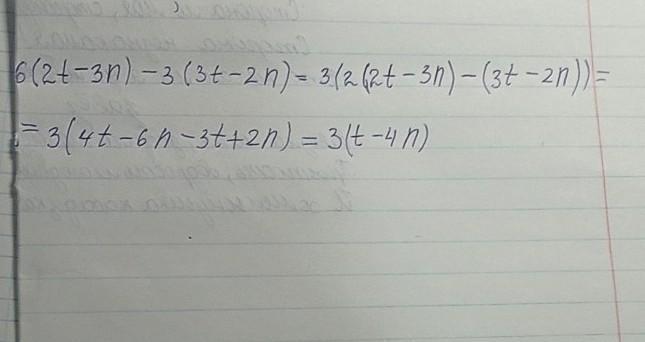 6(2t-3n)-3(3t-2n)=3(2(2t-3n)-(3t-2n))=
=3(4t-6n-3t+2n)=3(t-4n)